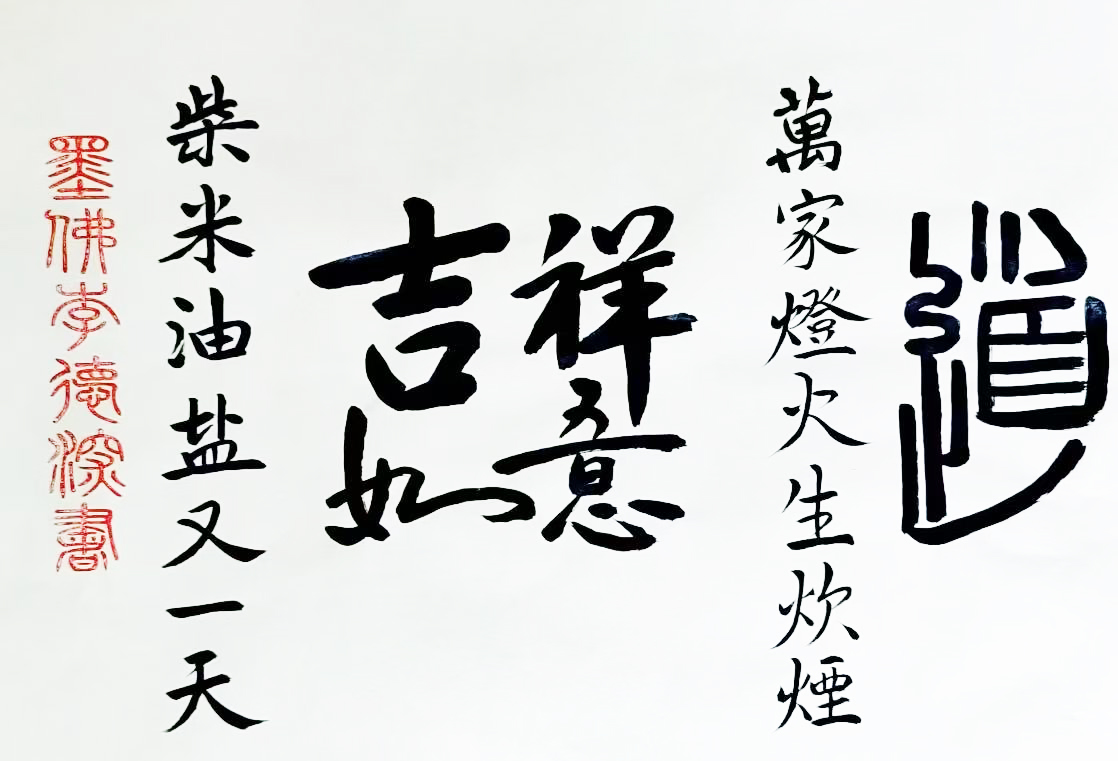 道
萬家燈火生炊煙
吉祥
如意
柴米油盐又一天
墨佛李德深書